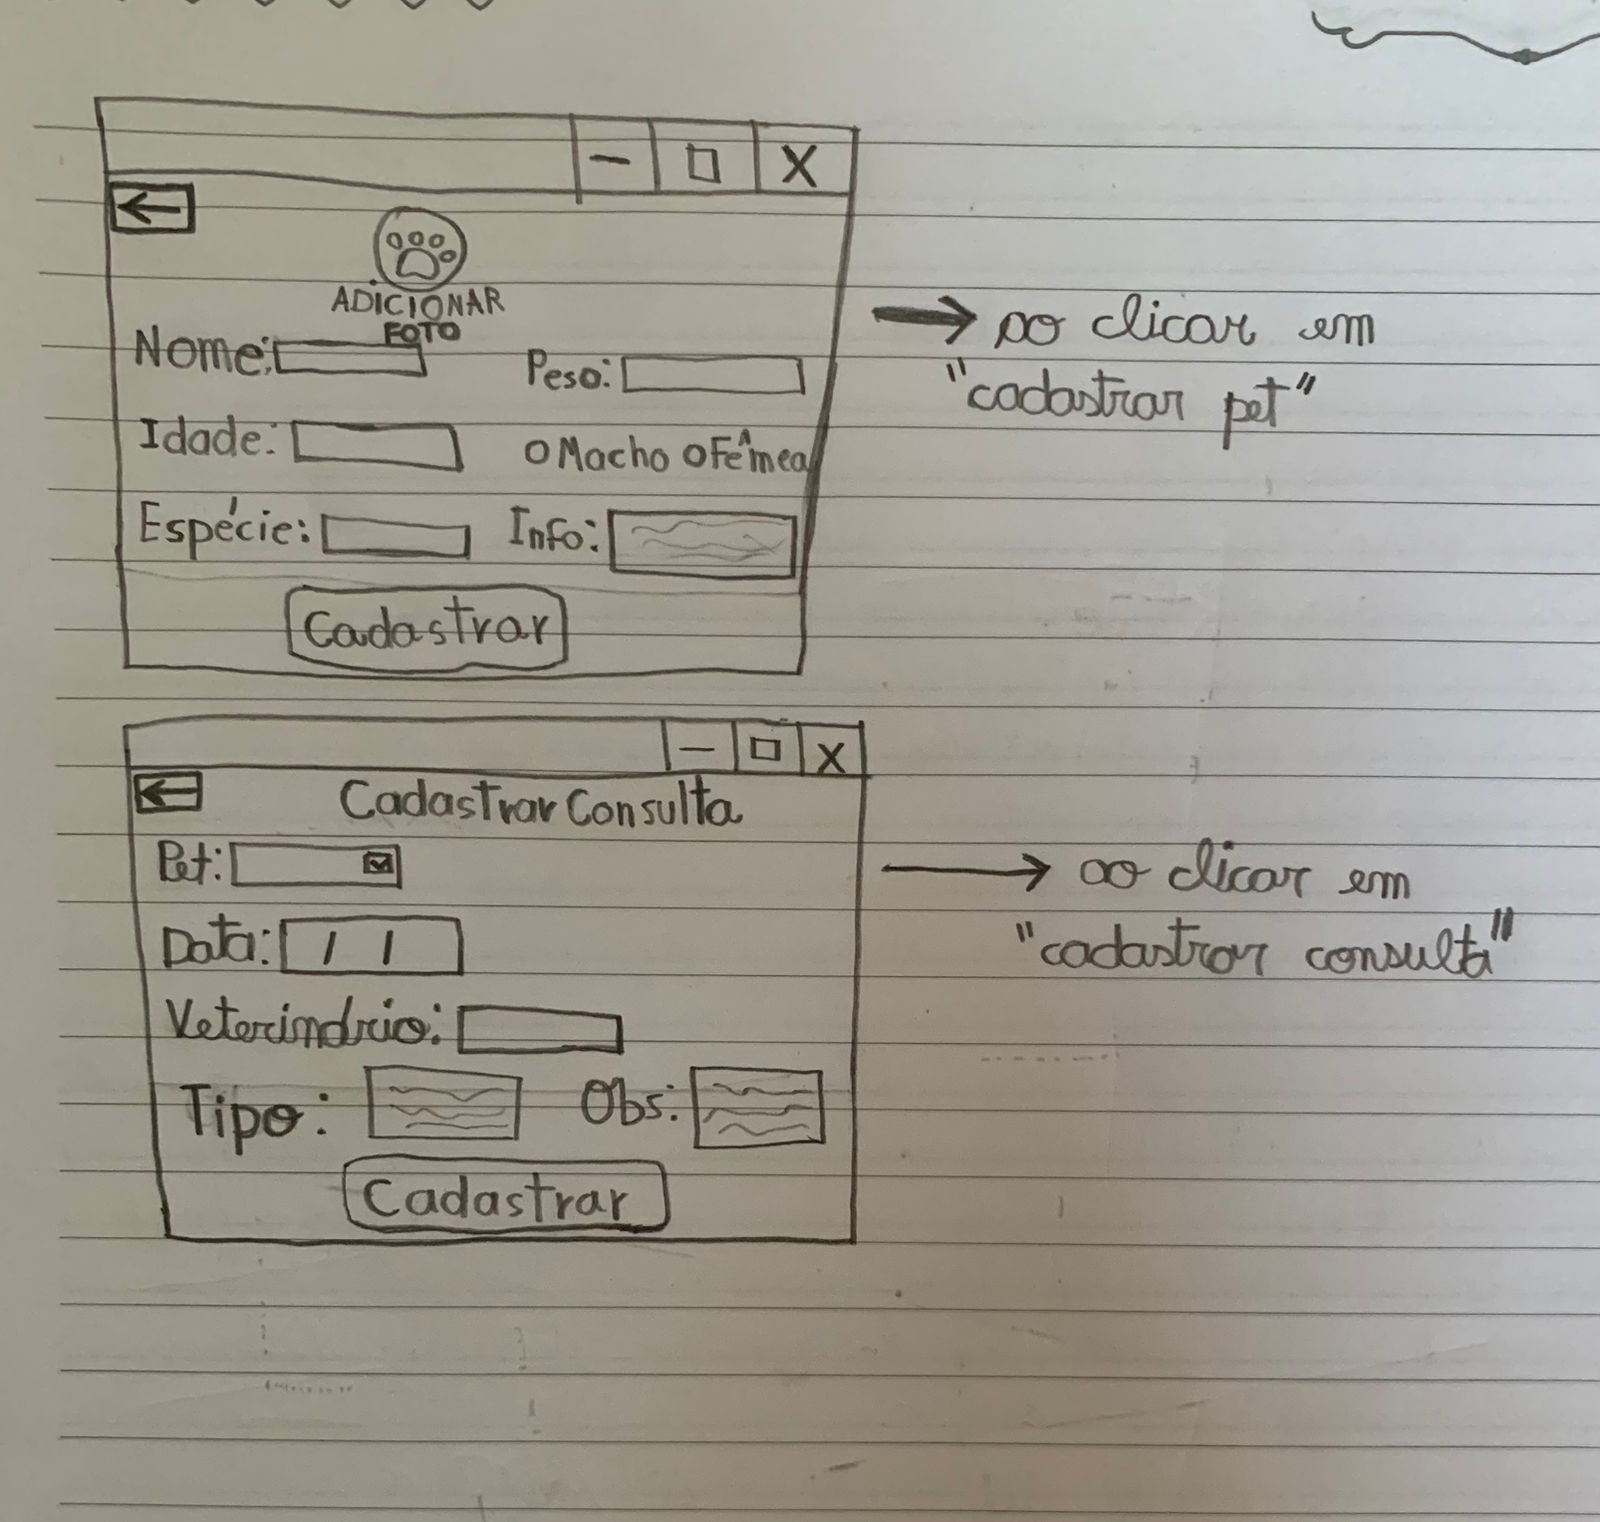 ADICIONAR
FOTO
Nome:
Peso:
Idade:
Macho Fêmea
Espécie:
Info:
Cadastrar
ao clicar em
"cadastrar pet"
Cadastrar Consulta
Pet:
Data: / /
Veterinário:
Tipo:
Obs:
Cadastrar
ao clicar em
"cadastrar consulta"